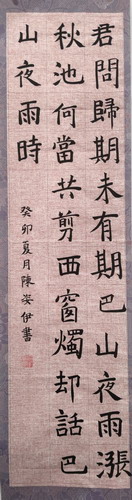 君問歸期未有期巴山夜雨漲
秋池何當共剪西窗燭却話巴
山夜雨時
癸卯夏月陳姿伊書